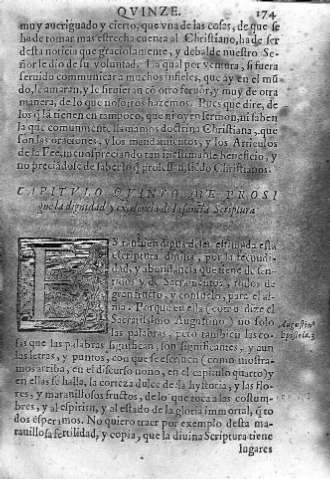 QVINZE. 174
muy aueriguado y cierto, que vna de las cosas, de que se
ha de tomar mas estrecha cuenta al Christiano, ha de ser
desta noticia que graciosamente, y debalde nuestro Se-
ñor le dio de su voluntad. La qual por ventura, si fuera
seruido communicar a muchos infieles, que ay en el mû-
do, le amaran, y le siruieran cõ otro feruor, y muy de otra
manera, de lo que nosotros hazemos. Pues que dire, de
los q̃ la tienen en tampoco, que ni oyen sermon, ni saben
la que comunmente llamamos doctrina Christiana, que
son las oraciones, y los mandamientos, y los Articulos
de la Fee, menospreciando tan inestimable beneficio, y
no preciãdose de saber lo q̃ professan, siẽdo Christianos.
CAPITVLO QVINTO, QVE PROSI
gue la dignidad y excelencia de la sancta Scriptura
ES tambien digna de ser estimada esta
escriptura diuina, por la fecundi-
dad, y abundancia que tiene de sen-
tidos y de Sacramentos, todos de
gran fructo, y consuelo, para el al-
ma. Porque en ella (como dize el
Sacratissimo Augustino) no solo
las palabras, pero tambien las co-
sas que las palabras significan, son significantes, y aun
las letras, y puntos, con que se escriuen (como mostra-
mos arriba, en el discurso nono, en el capitulo quarto) y
en ellas se halla, la corteza dulce de la hystoria, y las flo-
res, y marauillosos fructos, de lo que toca a las costum-
bres, y al espiritu, y al estado de la gloria immortal, q̃ to
dos esperamos. No quiero traer por exemplo desta ma-
rauillosa fertilidad, y copia, que la diuina Scriptura tiene
lugares
Augustin.
Epistola. 3